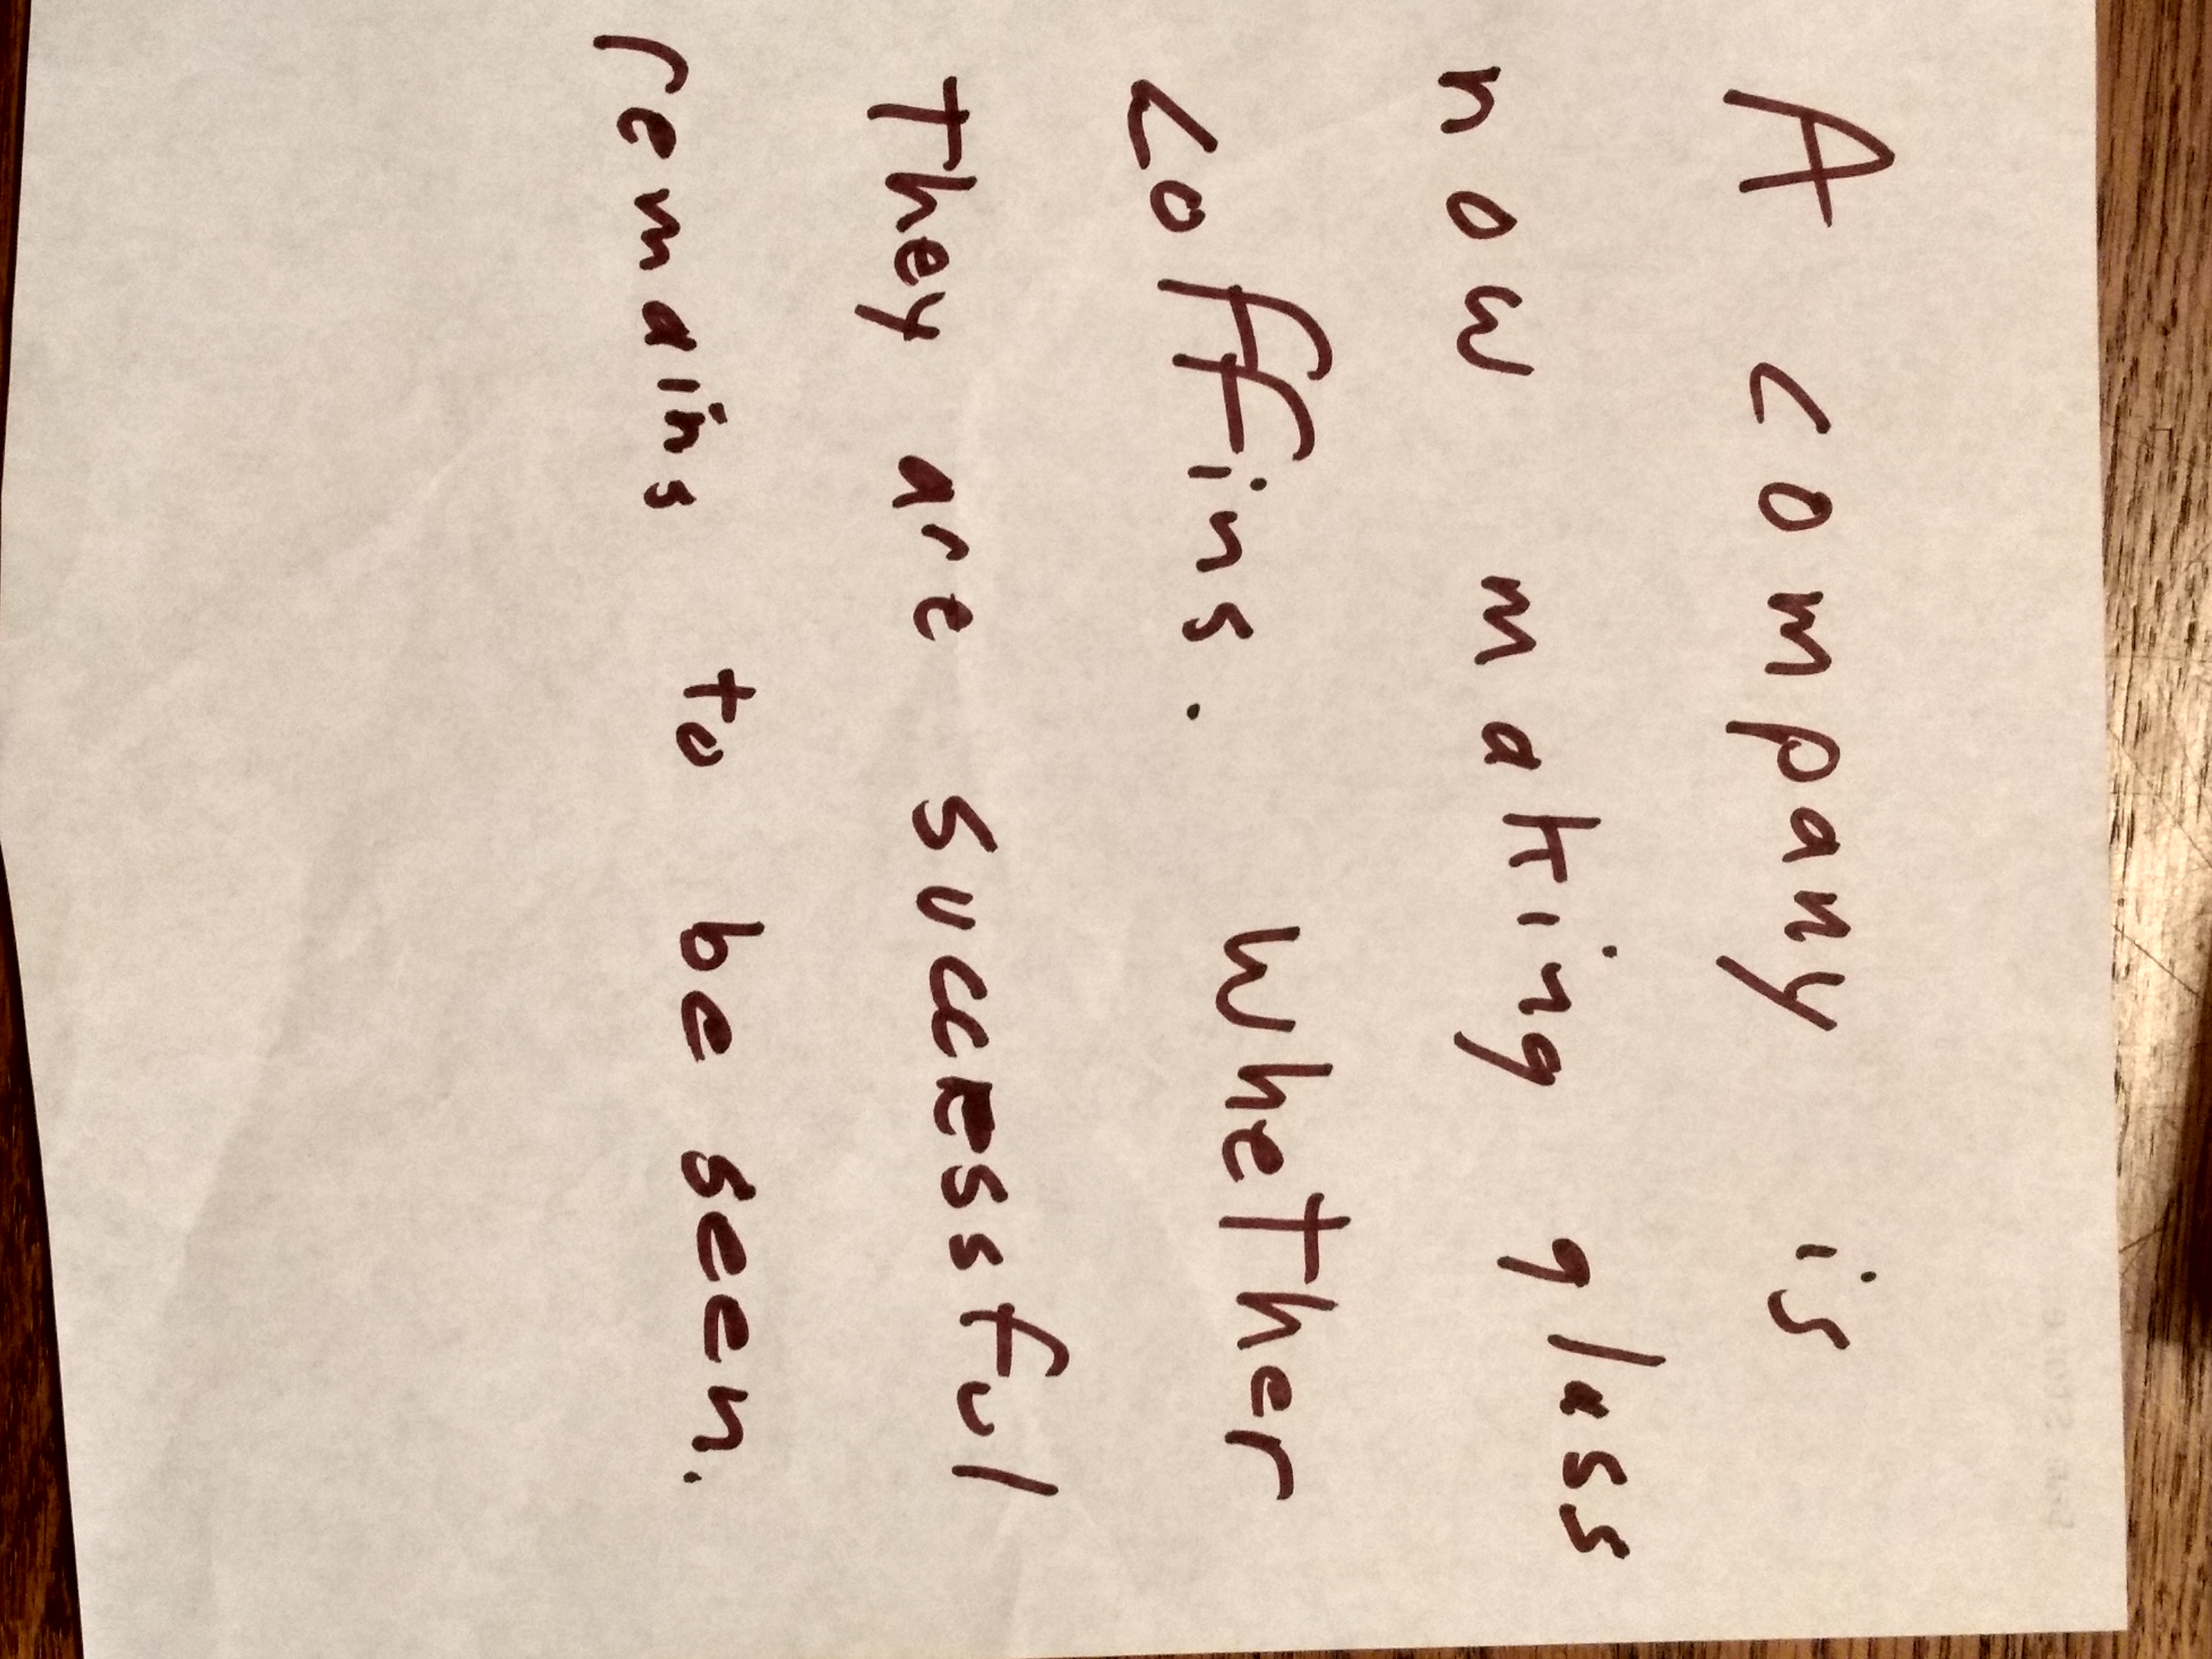 A company is
now making glass
coffins. Whether
They are successful
remains to be seen.